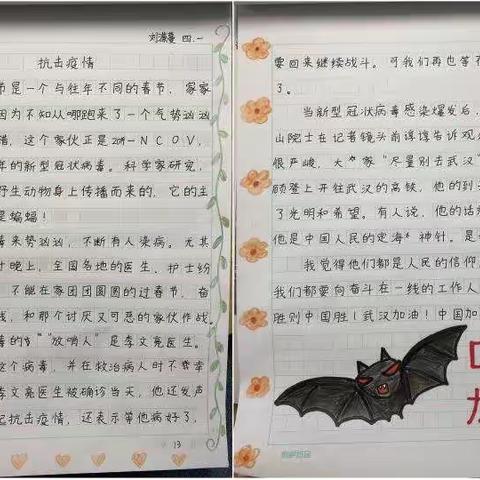 刘潇蔓 四.一
抗击疫情
节是一个与往年不同的春节，家家
因为不知从哪跑来了一个气势汹汹
措，这个家伙正是2019-NCOV，
年的新型冠状病毒。科学家研究，
野生动物身上传播而来的，它的主
是蝙蝠！
毒来势汹汹，不断有人染病。尤其
时晚上，全国各地的医生、护士纷
不能在家团团圆圆的过春节，奋
线，和那个讨厌又可恶的家伙作战。
毒的"放哨人"是李文亮医生。
这个病毒，并在救治病人时不幸
李文亮医生被确诊当天，他还发声
起抗击疫情，还表示等他病好了，
13
要回来继续战斗。可我们再也等不
了。
当新型冠状病毒感染爆发后，
山院士在记者镜头前谆谆告诉观
很严峻，大家"尽量别去武汉"
顾登上开往武汉的高铁，他的到
了光明和希望。有人说，他的话
他是中国人民的定海神针。是
我觉得他们都是人民的信仰，
我们都要向奋斗在一线的工作人
胜则中国胜！武汉加油！中国加